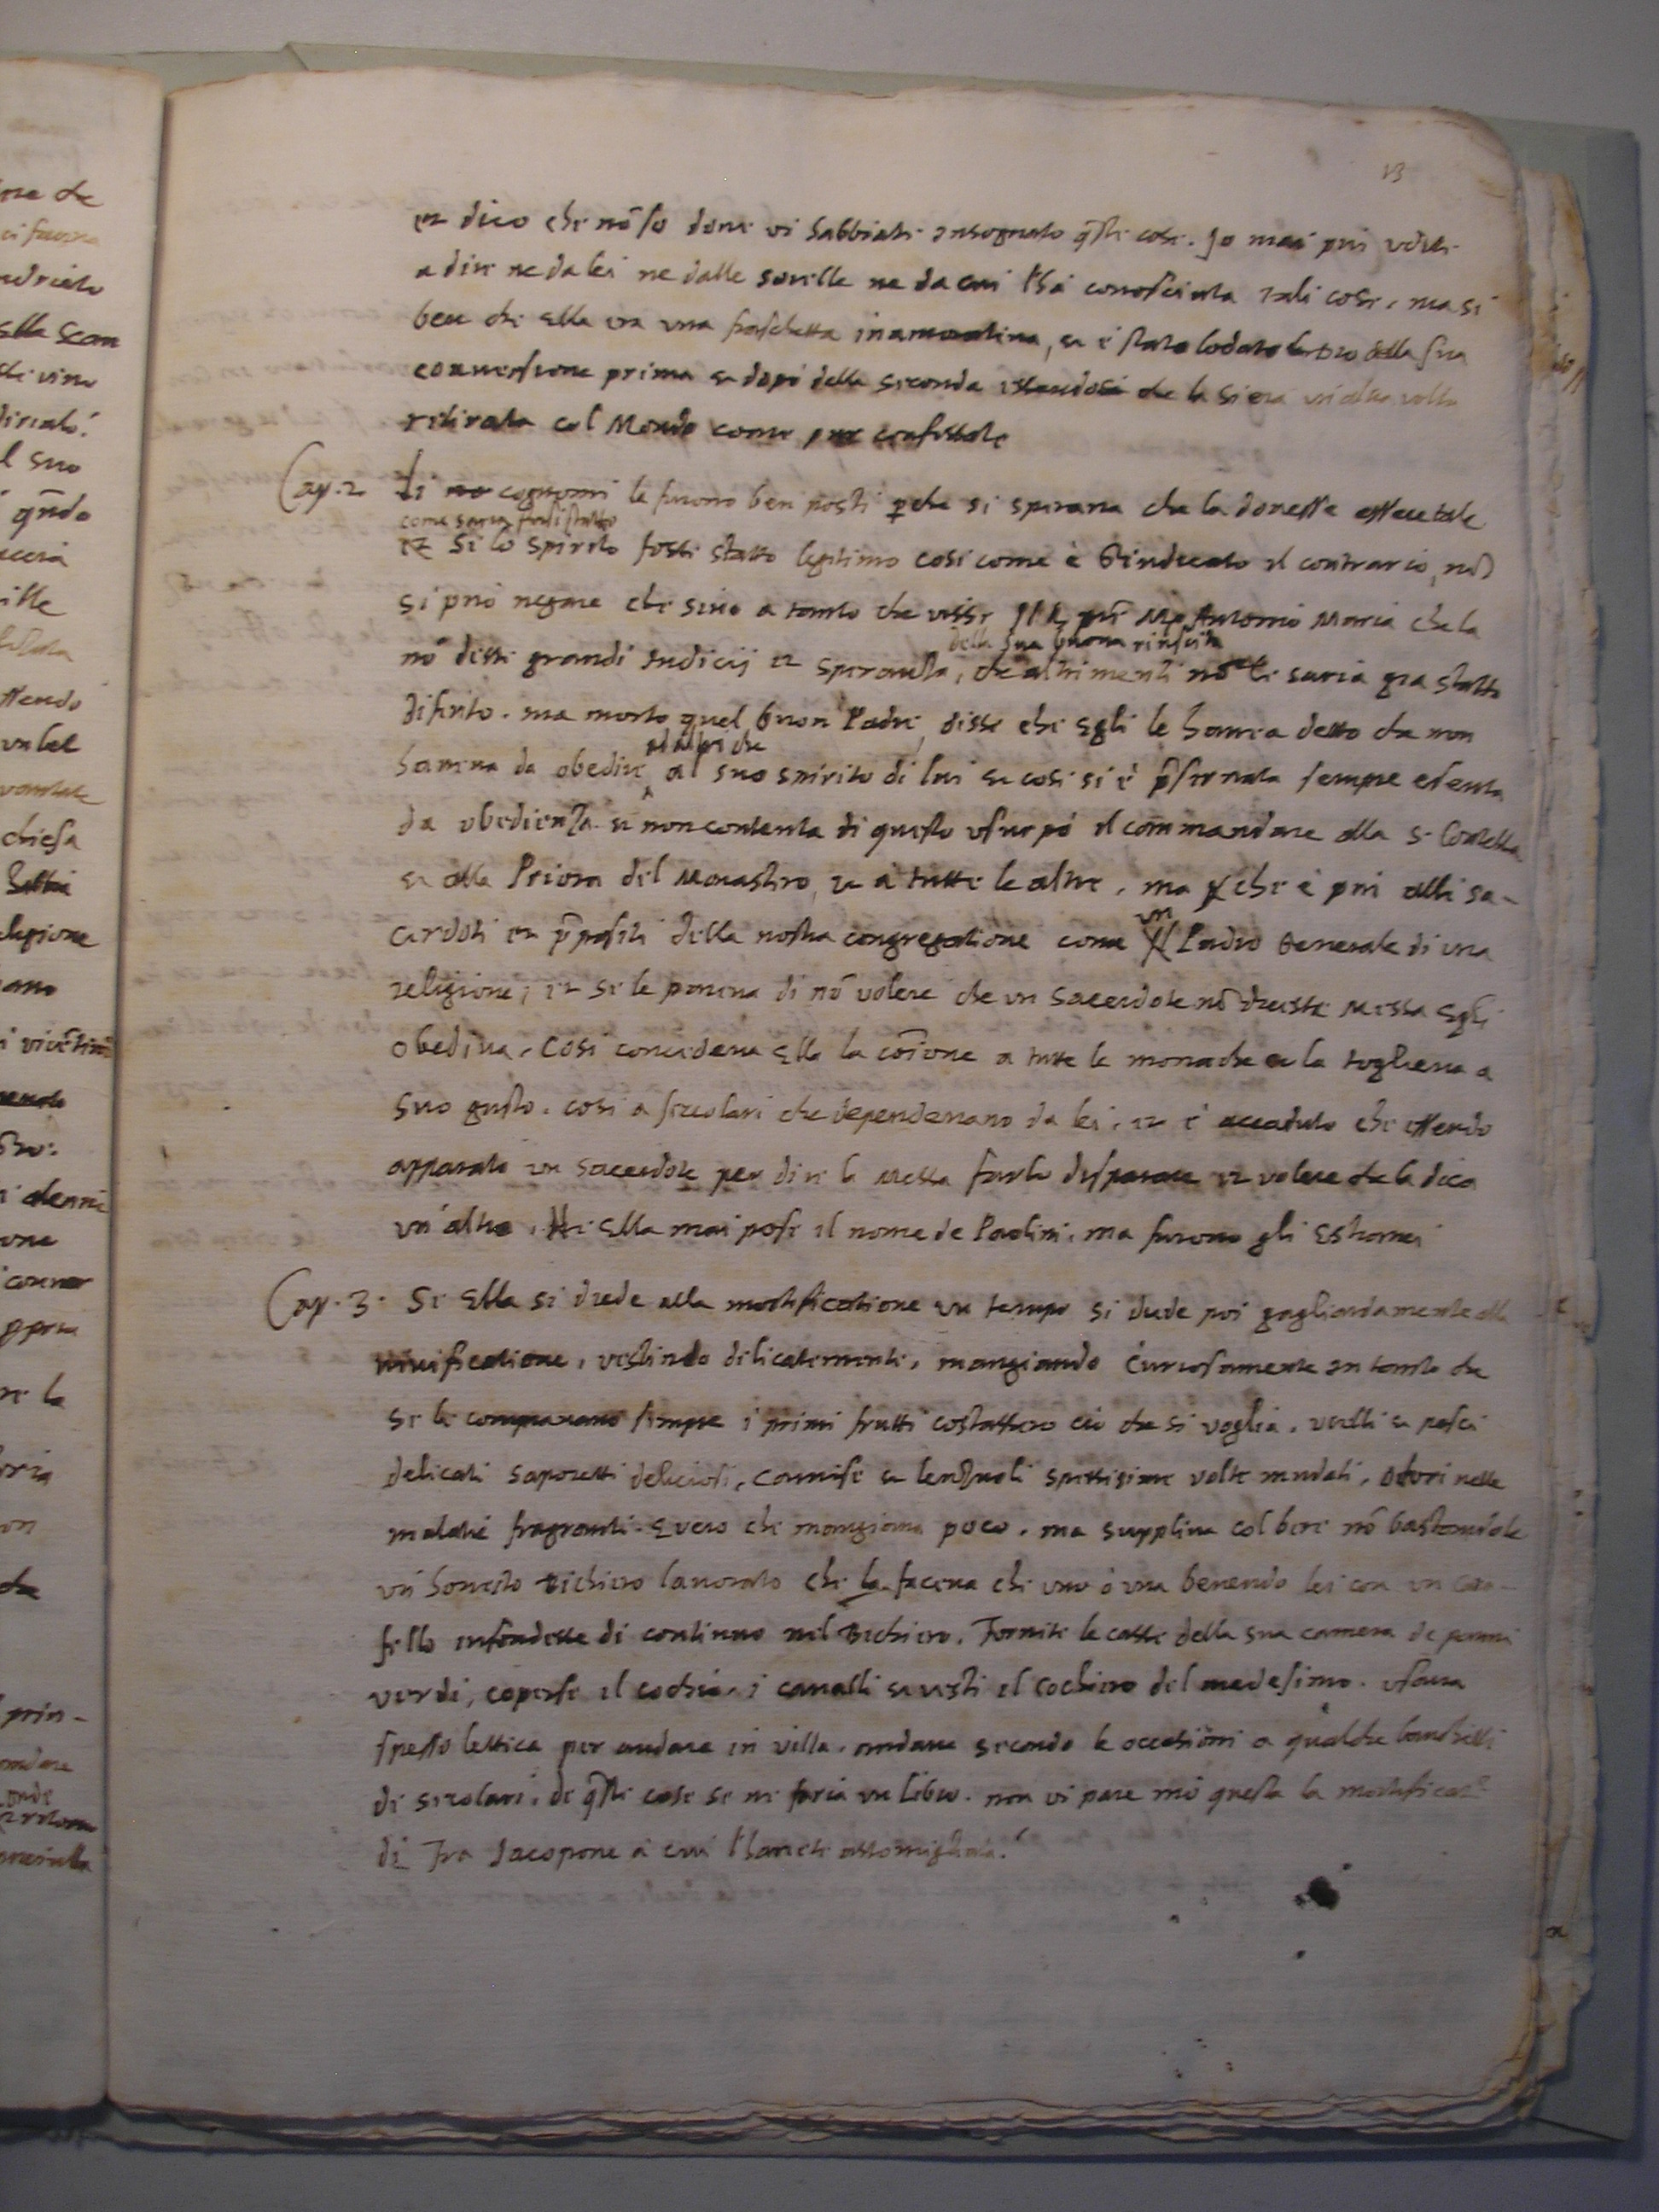 13
et dico che nõ so dove vi habbiate insognato q̃ste cose. Io mai più udetti
a dire ne da lei ne dalle sorelle ne da cui l'ha conosciuta tali cose, ma si
bene che ella era una fraschetta inamoratina, et è stato lodato Iddio della sua
conversione prima et dopò della seconda essendosi che la si era un'altra volta
ritirata col Mondo come pur confessate
Cap. 2. Li no cognomi le furono ben posti p̱che si sperava che la dovesse essere tale
come saria forsi stato
et se lo spirito fosse stato legitimo così come è giudicato il contrario, nõ
si può negare che sino a tanto che visse il R. p̃re Mp Antonio Maria che la
della sua buona riuscita
nõ desse grandi indicij et speranza, che altrimenti nõ le saria gia stato
diferito. ma morto quel buon Padre, disse che egli le haveva detto che non
ad altri che
haveva da obedire al suo spirito di lui et così si è p̃servata sempre esenta
da obedienza et non contenta di questo usurpò il commandare alla S. Contessa
et alla Priora del Monastero, et à tutte le altre, ma che è più alli sa-
un
cerdoti et p̃positi della nostra congregatione come Padre Generale di una
religione; et se le pareva di nõ volere che un sacerdote nõ dicesse Messa egli
obediva. Così concedeva ella la cõione a tutte le monache et la toglieva a
suo gusto. così a secolari che dependevano da lei. et è accaduto che essendo
apparato un sacerdote per dire la Messa farlo disparare et volere che la dica
un'altro. Ne ella mai pose il nome de Paolini, ma furono gli estranei
Cap. 3. Se ella si diede alla mortificatione un tempo si diede poi gagliardamente alla
vivificatione, vestindo delicatamente, mangiando curiosamente in tanto che
se le comparavano sempre i primi frutti costassero ciò che si voglia. ucelli et pesci
delicati saporetti deliciosi, camise et lenzuoli spessissime volte mudati, odori nelle
malatie fragranti. È vero che mangiava poco. ma suppliva col bere nõ bastandole
un honesto bichiero lavorato che la faceva che uno ò una bevendo lei con un cara-
fello infondesse di continuo nel bichiero. Fornite le casse della sua camera de panni
verdi, coperse il cochio, i cavalli et vesti il cochiero del medesimo. usava
spesso lettica per andare in villa. andava secondo le occasioni a qualche banchetti
de secolari. de q̃ste cose se ne faria un libro. non vi pare mò questa la mortificat.e
di Fra Iacopone à cui l'havete assomigliata?